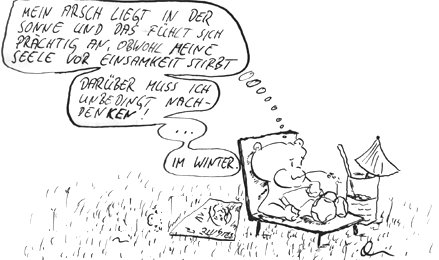 MEIN ARSCH LIEGT IN DER
SONNE UND DAS FÜHLT SICH
PRÄCHTIG AN, OBWOHL MEINE
SEELE VOR EINSAMKEIT STIRBT
DARÜBER MUSS ICH
UNBEDINGT NACH-
DENKEN!
...
IM WINTER.